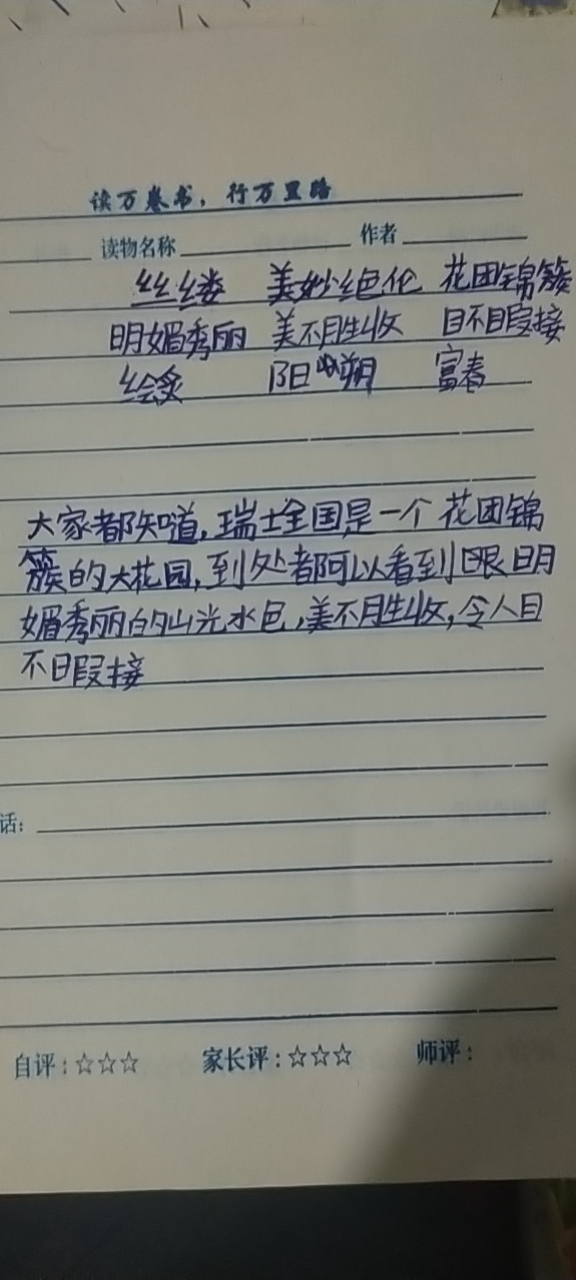 读万卷书，行万里路
读物名称 作者
丝缕 美妙绝伦 花团锦簇
明媚秀丽 美不胜收 目不暇接
绘 阳朔 富春
大家都知道，瑞士全国是一个花团锦
簇的大花园，到处都可以看到明
媚秀丽的山光水色，美不胜收，令人目
不暇接
话：
自评：☆☆☆ 家长评：☆☆☆ 师评：